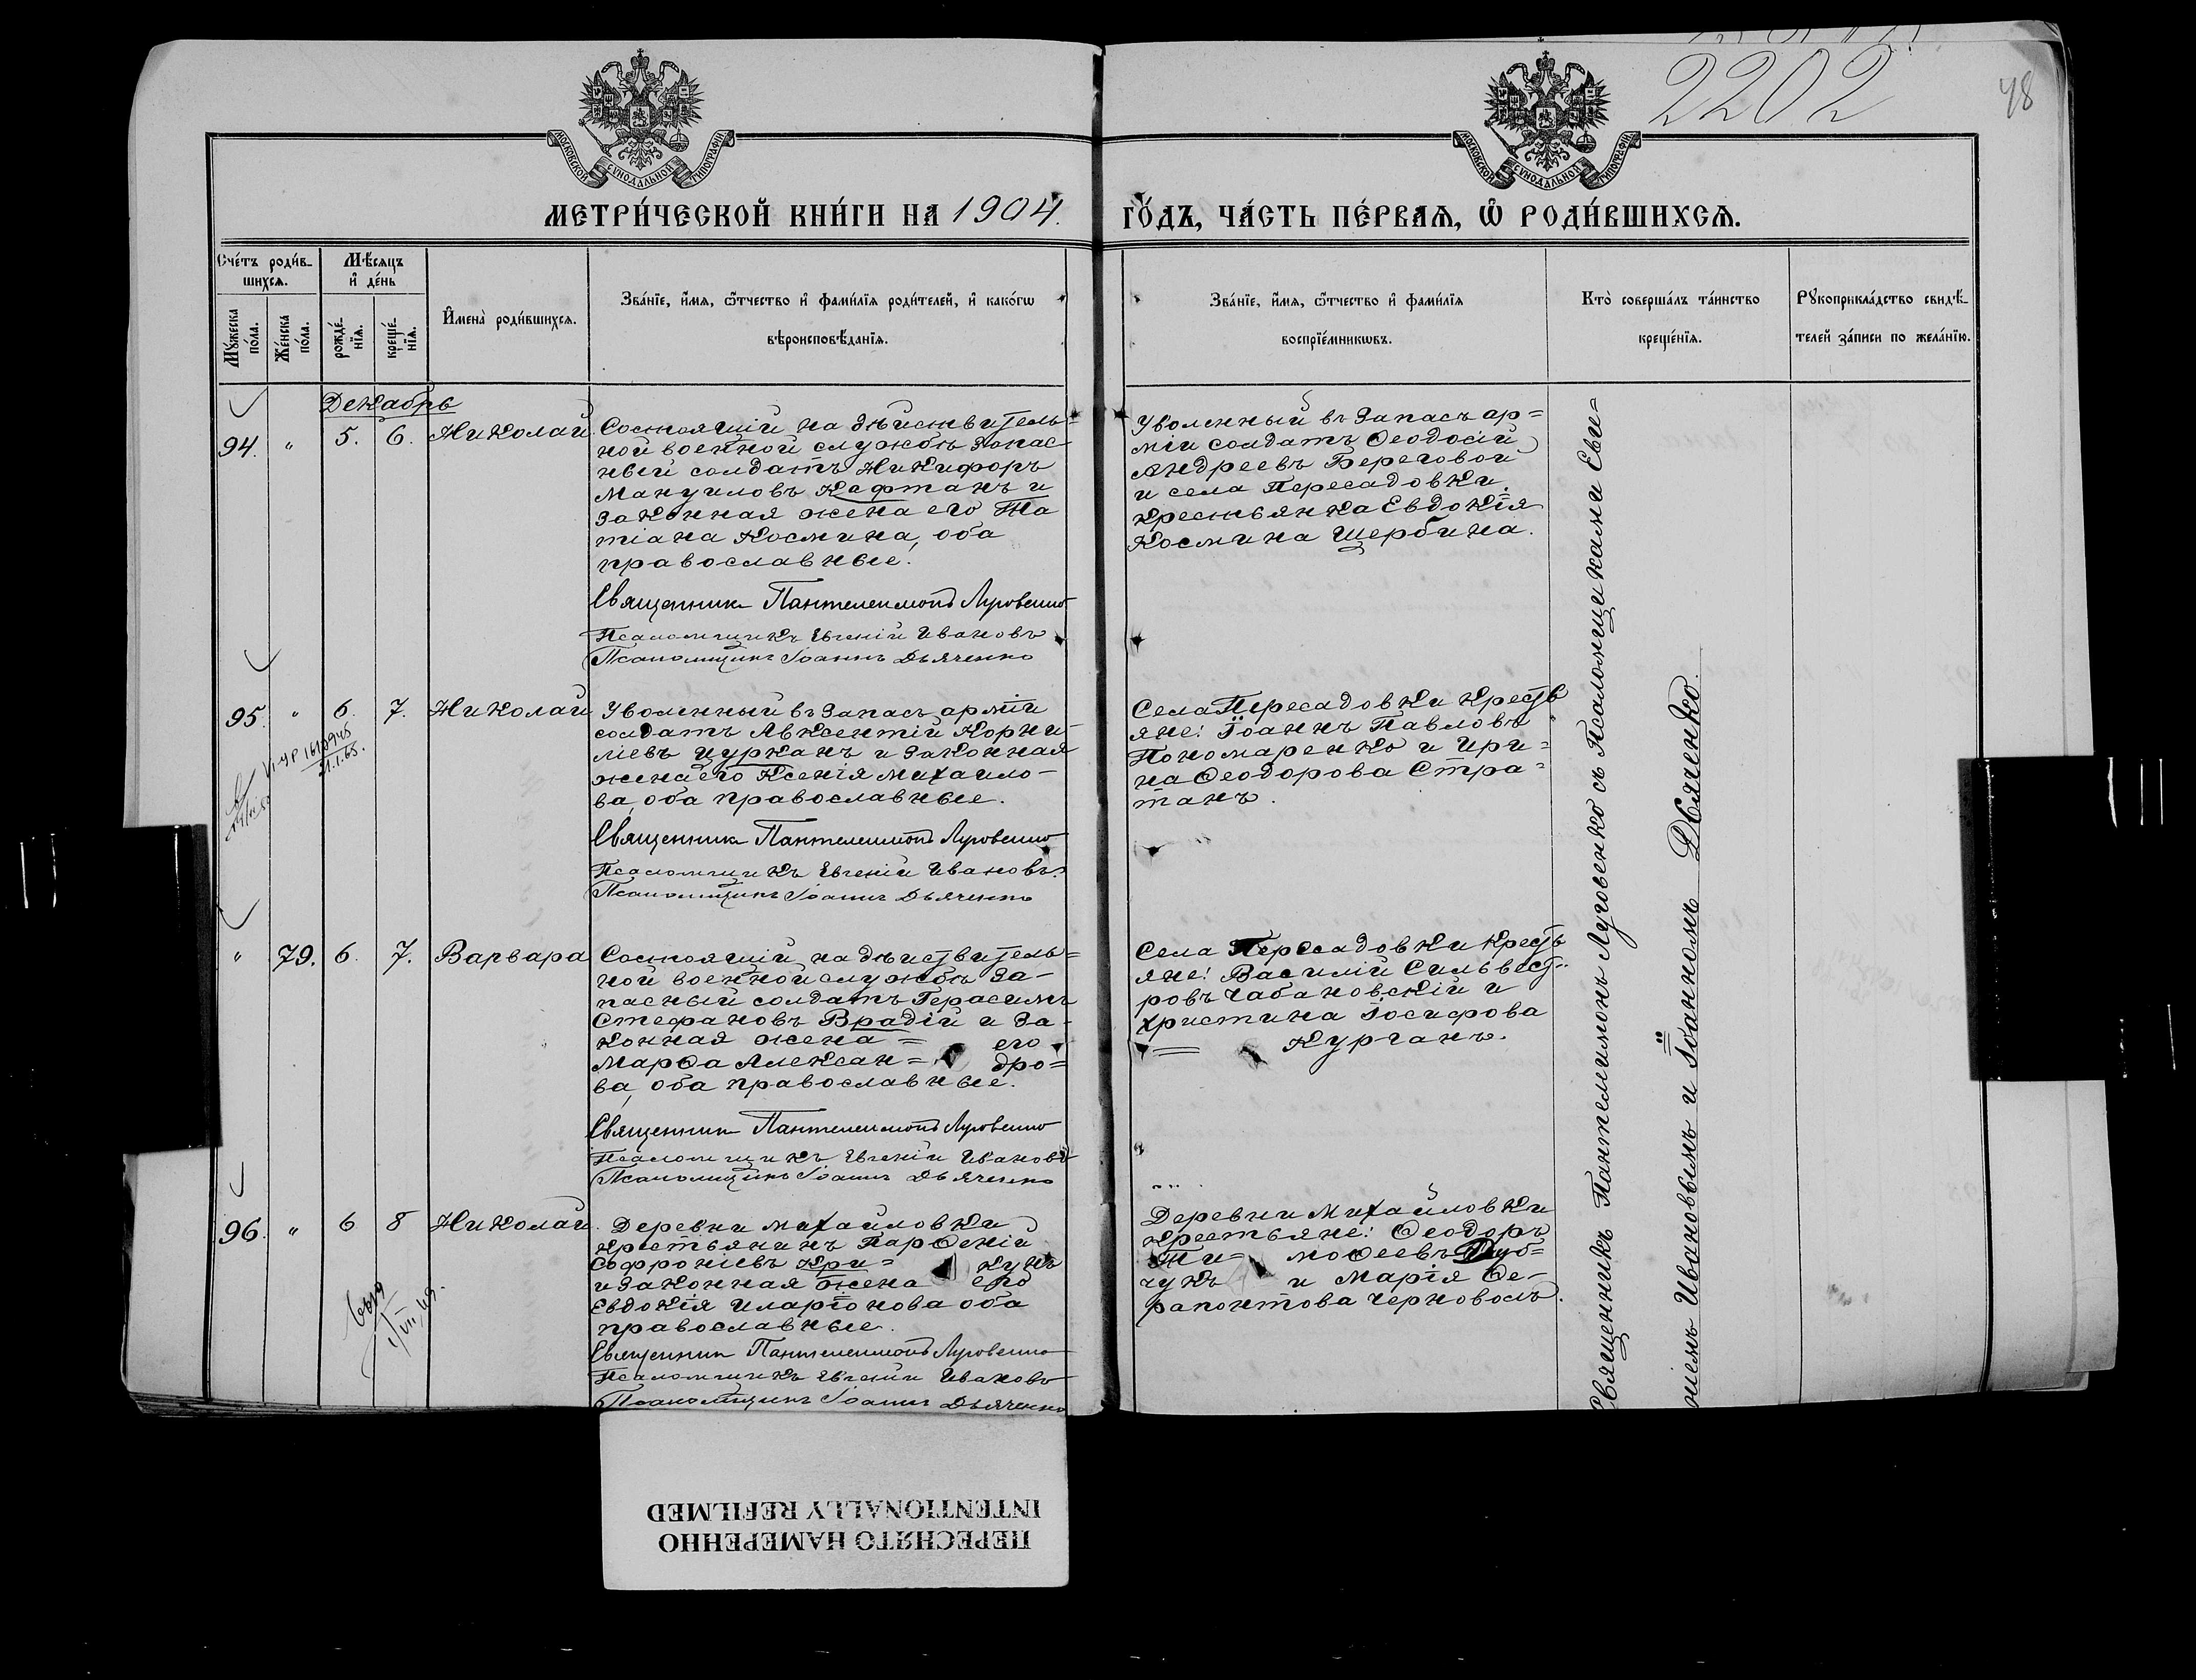 2202
48
МОСКОВСКОЙ СѴНОДАЛЬНОЙ ТИПОГРАФІИ
МОСКОВСКОЙ СѴНОДАЛЬНОЙ ТИПОГРАФІИ
МЕТРИ́ЧЕСКОЙ КНИ́ГИ НА 1904. ГО́ДЪ, ЧА́СТЬ ПЕ́РВАѦ, Ѽ РОДИ́ВШИХСѦ.
Сче́тъ роди́в-
шихсѧ.
Мꙋ́жеска по́ла.
Же́нска по́ла.
Мѣ́сѧцъ
и҆ де́нь
рожде́-
нїѧ.
креще́-
нїѧ.
И҆мена̀ роди́вшихсѧ.
Зва́нїе, и҆́мѧ, ѻ҆́тчество и҆ фами́лїѧ роди́телей, и҆ како́гѡ
вѣроисповѣ́данїѧ.
Зва́нїе, и҆́мѧ, ѻ҆́тчество и҆ фами́лїѧ
воспрїе́мникѡвъ.
Кто̀ соверша́лъ та́инство
креще́нїѧ.
Рꙋкоприкла́дство свидѣ́-
телей за́писи по жела́нїю.
Декабрь
94. " 5. 6. Николай
Состоящій на дѣйствитель=
ной военной службѣ запас-
ный солдатъ Никифоръ
Мануиловъ Кафтанъ и
законная жена его Та
тіана Космина, оба
православные.
Священникъ Пантелеимонъ Луговенко
Псаломщикъ Евгеній Ивановъ
Псаломщикъ Іоаннъ Дьяченко
Уволенный въ запасъ ар=
міи солдатъ Ѳеодосій
Андреевъ Береговой
и села Пересадовки
крестьянка Евдокія
Космина Щербина.
95. " 6. 7. Николай
1610945
21.1.65.
Уволенный въ запасъ арміи
солдатъ Авксентій Корни-
ліевъ Цурканъ и законная
жена его Ксенія Михаило-
ва, оба православные.
Священникъ Пантелеимонъ Луговенко
Псаломщикъ Евгеній Ивановъ
Псаломщикъ Іоаннъ Дьяченко
Села Пересадовки кресть
яне: Іоаннъ Павловъ
Пономаренко и Ири=
на Ѳеодорова Стра=
танъ.
" 79. 6. 7. Варвара
Состоящій на дѣйствитель=
ной военной службѣ за-
пасный солдатъ Герасимъ
Стефановъ Врадій и за-
конная жена = его
Марѳа Алексан= дро=
ва, оба православные.
Священникъ Пантелеимонъ Луговенко
Псаломщикъ Евгеній Ивановъ
Псаломщикъ Іоаннъ Дьяченко
Села Пересадовки кресть
яне: Василій Сильвест-
ровъ Чабановскій и
Христина Іосифова
= Курганъ.
96. " 6 8 Николай
Деревни Михайловки
крестьянинъ Парѳеній
Софроніевъ Кри= кунъ
и законная жена его
Евдокія Иларіонова оба
православные.
Священникъ Пантелеимонъ Луговенко
Псаломщикъ Евгеній Ивановъ
Псаломщикъ Іоаннъ Дьяченко
Деревни Михайловки
крестьяне: Ѳеодоръ
Ти= моѳеевъ Дуб=
чукъ и Марія Ѳе-
рапонтова Черноволъ.
Священникъ Пантелеимонъ Луговенко съ Псаломщиками Евге=
ніемъ Ивановымъ и Іоанномъ Дьяченко.
ПЕРЕСНЯТО НАМЕРЕННО
INTENTIONALLY REFILMED